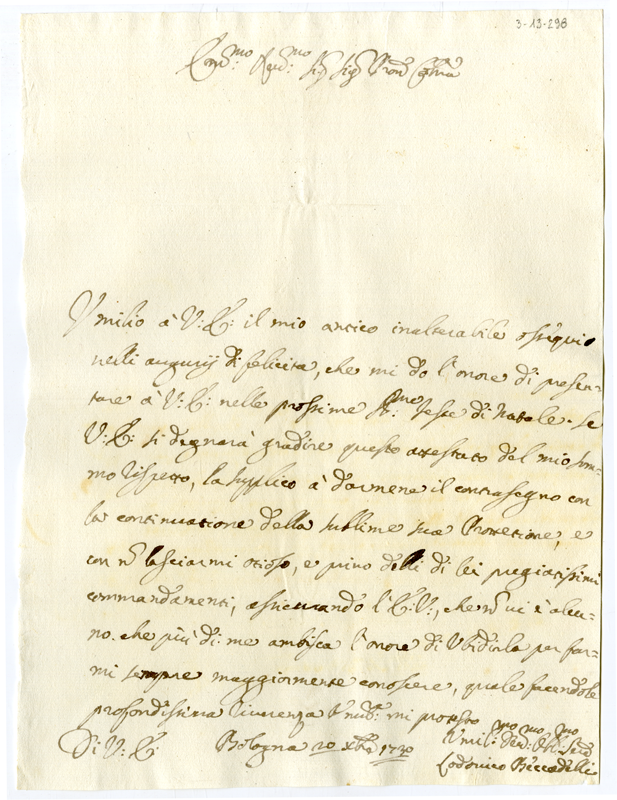 3-13-298
Em:mo Reu:mo Sig: Sig: Pron: Colmo
Vmilio à V: E: il mio antico inalterabile ossequio
nelli augurij di felicità, che mi do l'onore di presen=
tare à V: E: nelle prossime SS:me feste di Natale. Se
V: E: si degnarà gradire questo attestato del mio som=
mo rispetto, la supplico à darmene il contrasegno con
la continuatione della sublime sua Protetione, e
con nõ lasciarmi otioso, e priuo delli di lei pregiatissimi
commandamenti, assicurando l'E: V:, che nõ ui è alcu=
no che più di me ambisca l'onore di Vbidirla per far=
mi sempre maggiormente conoscere, quale facendole
profondissima riuerenza mi protesto
Di V: E: Bologna 20 Xbre 1730 Vmil:mo Deu:mo Obl:mo Seru:
Lodouico Beccadelli